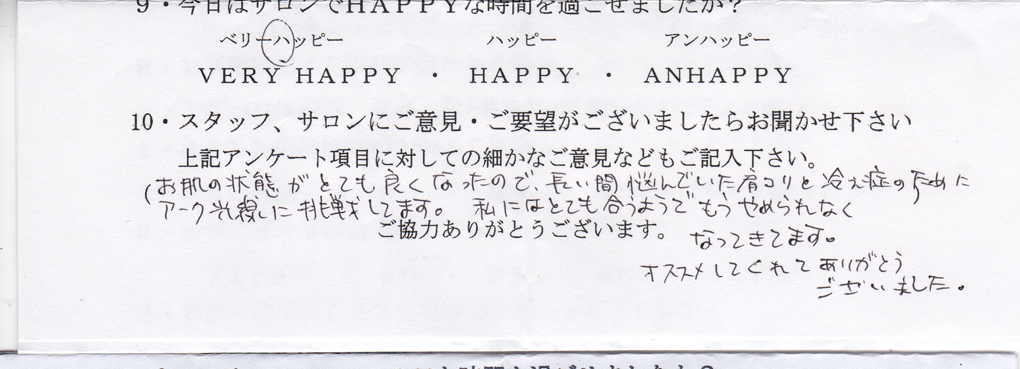 9・今日はサロンでHAPPYな時間を過ごせましたか？
ベリーハッピー　ハッピー　アンハッピー
VERY HAPPY ・ HAPPY ・ ANHAPPY
10・スタッフ、サロンにご意見・ご要望がございましたらお聞かせ下さい
上記アンケート項目に対しての細かなご意見などもご記入下さい。
(お肌の状態がとても良くなったので、長い間悩んでいた肩コリと冷え症のために)
アーク光線に挑戦してます。私にはとても合うようでもうやめられなく
ご協力ありがとうございます。
なってきてます。
オススメしてくれてありがとう
ございました。